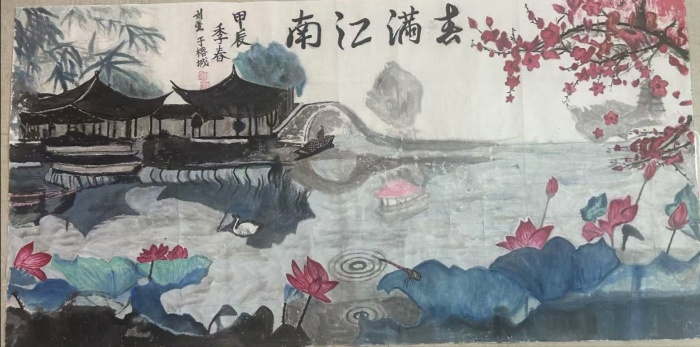 春满江南
甲辰
季春
于榕城